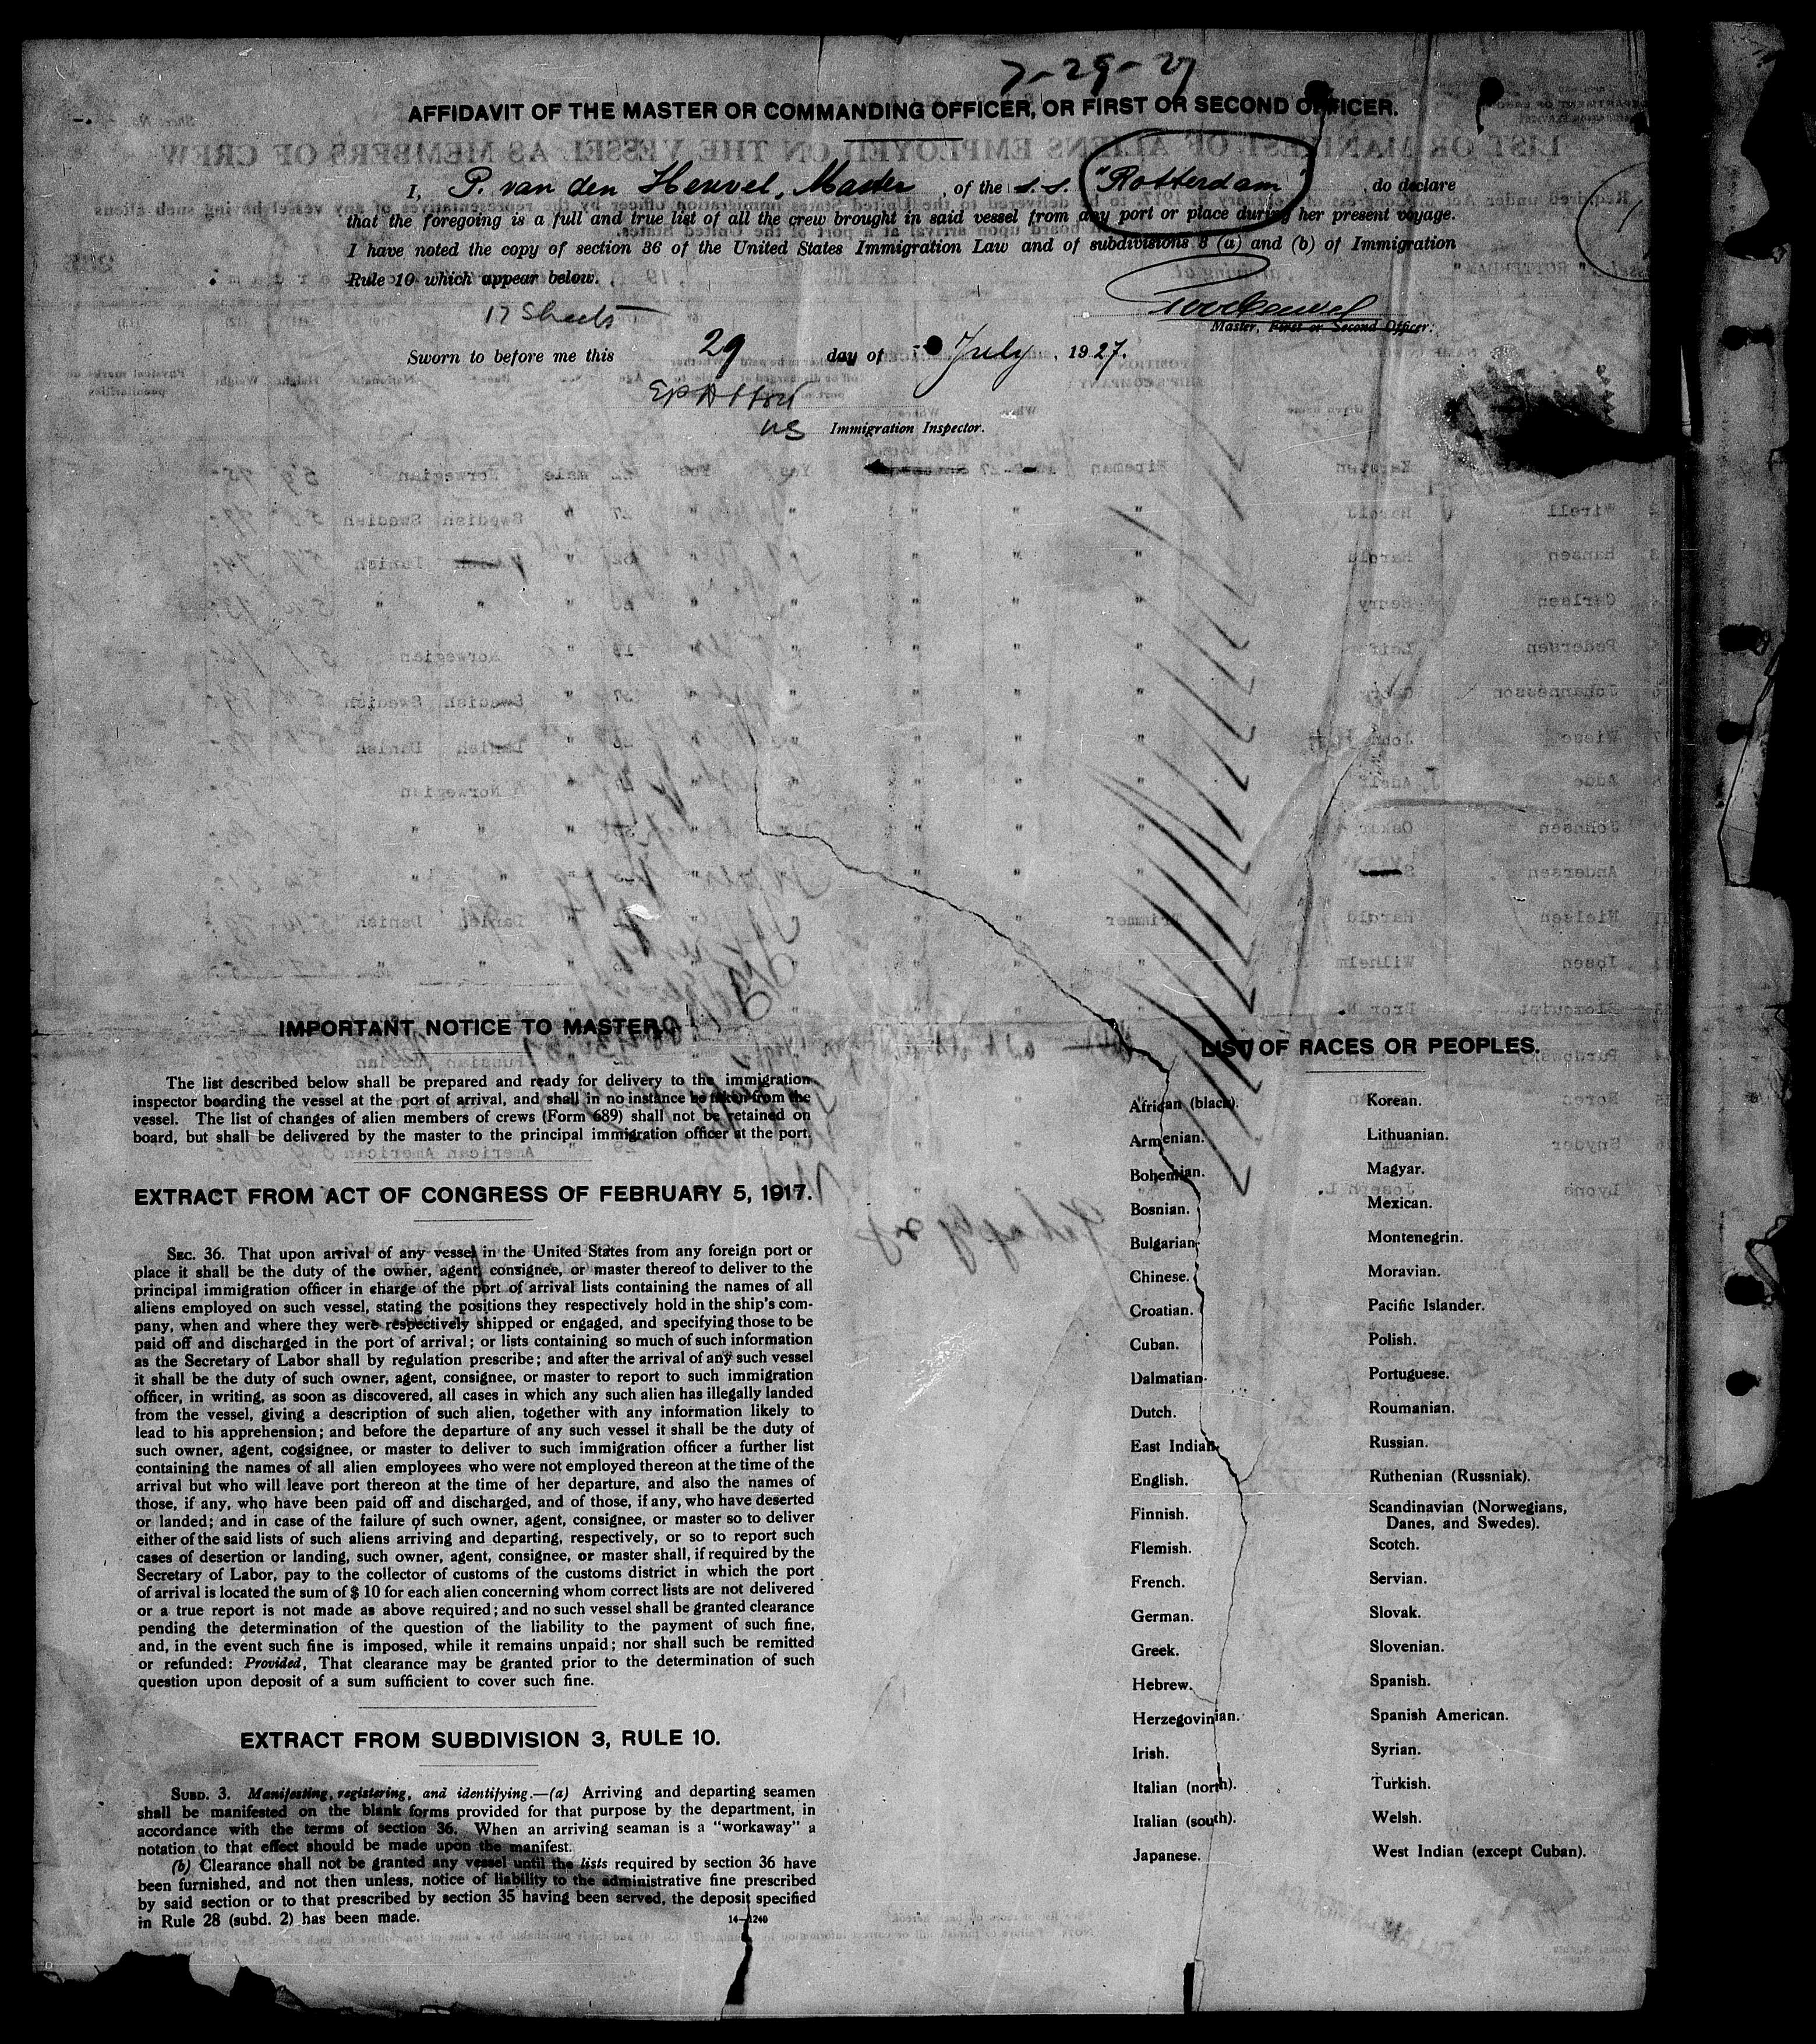 7-29-27
AFFIDAVIT OF THE MASTER OR COMMANDING OFFICER, OR FIRST OR SECOND OFFICER.
I, P. van den Heuvel, Master, of the s.s. "Rotterdam" do declare
that the foregoing is a full and true list of all the crew brought in said vessel from any port or place during her present voyage.
I have noted the copy of section 36 of the United States Immigration Law and of subdivisions 3 (a) and (b) of Immigration
Rule 10 which appear below.
17 Sheets
Master, First or Second Officer.
Sworn to before me this 29 day of July, 1927.
US Immigration Inspector.
IMPORTANT NOTICE TO MASTER.
The list described below shall be prepared and ready for delivery to the immigration
inspector boarding the vessel at the port of arrival, and shall in no instance be taken from the
vessel. The list of changes of alien members of crews (Form 689) shall not be retained on
board, but shall be delivered by the master to the principal immigration officer at the port.
EXTRACT FROM ACT OF CONGRESS OF FEBRUARY 5, 1917.
SEC. 36. That upon arrival of any vessel in the United States from any foreign port or
place it shall be the duty of the owner, agent, consignee, or master thereof to deliver to the
principal immigration officer in charge of the port of arrival lists containing the names of all
aliens employed on such vessel, stating the positions they respectively hold in the ship's com-
pany, when and where they were respectively shipped or engaged, and specifying those to be
paid off and discharged in the port of arrival; or lists containing so much of such information
as the Secretary of Labor shall by regulation prescribe; and after the arrival of any such vessel
it shall be the duty of such owner, agent, consignee, or master to report to such immigration
officer, in writing, as soon as discovered, all cases in which any such alien has illegally landed
from the vessel, giving a description of such alien, together with any information likely to
lead to his apprehension; and before the departure of any such vessel it shall be the duty of
such owner, agent, cogsignee, or master to deliver to such immigration officer a further list
containing the names of all alien employees who were not employed thereon at the time of the
arrival but who will leave port thereon at the time of her departure, and also the names of
those, if any, who have been paid off and discharged, and of those, if any, who have deserted
or landed; and in case of the failure of such owner, agent, consignee, or master so to deliver
either of the said lists of such aliens arriving and departing, respectively, or so to report such
cases of desertion or landing, such owner, agent, consignee, or master shall, if required by the
Secretary of Labor, pay to the collector of customs of the customs district in which the port
of arrival is located the sum of $ 10 for each alien concerning whom correct lists are not delivered
or a true report is not made as above required; and no such vessel shall be granted clearance
pending the determination of the question of the liability to the payment of such fine,
and, in the event such fine is imposed, while it remains unpaid; nor shall such be remitted
or refunded: Provided, That clearance may be granted prior to the determination of such
question upon deposit of a sum sufficient to cover such fine.
EXTRACT FROM SUBDIVISION 3, RULE 10.
SUBD. 3. Manifesting, registering, and identifying.—(a) Arriving and departing seamen
shall be manifested on the blank forms provided for that purpose by the department, in
accordance with the terms of section 36. When an arriving seaman is a "workaway" a
notation to that effect should be made upon the manifest.
(b) Clearance shall not be granted any vessel until the lists required by section 36 have
been furnished, and not then unless, notice of liability to the administrative fine prescribed
by said section or to that prescribed by section 35 having been served, the deposit specified
in Rule 28 (subd. 2) has been made.
14—1240
LIST OF RACES OR PEOPLES.
African (black).
Armenian.
Bohemian.
Bosnian.
Bulgarian.
Chinese.
Croatian.
Cuban.
Dalmatian.
Dutch.
East Indian.
English.
Finnish.
Flemish.
French.
German.
Greek.
Hebrew.
Herzegovinian.
Irish.
Italian (north).
Italian (south).
Japanese.
Korean.
Lithuanian.
Magyar.
Mexican.
Montenegrin.
Moravian.
Pacific Islander.
Polish.
Portuguese.
Roumanian.
Russian.
Ruthenian (Russniak).
Scandinavian (Norwegians,
Danes, and Swedes).
Scotch.
Servian.
Slovak.
Slovenian.
Spanish.
Spanish American.
Syrian.
Turkish.
Welsh.
West Indian (except Cuban).